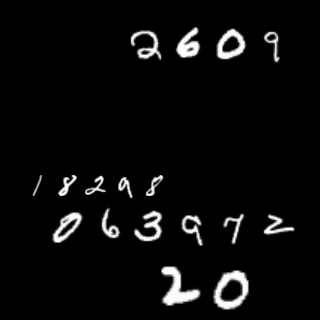 2609
18298
063972
20